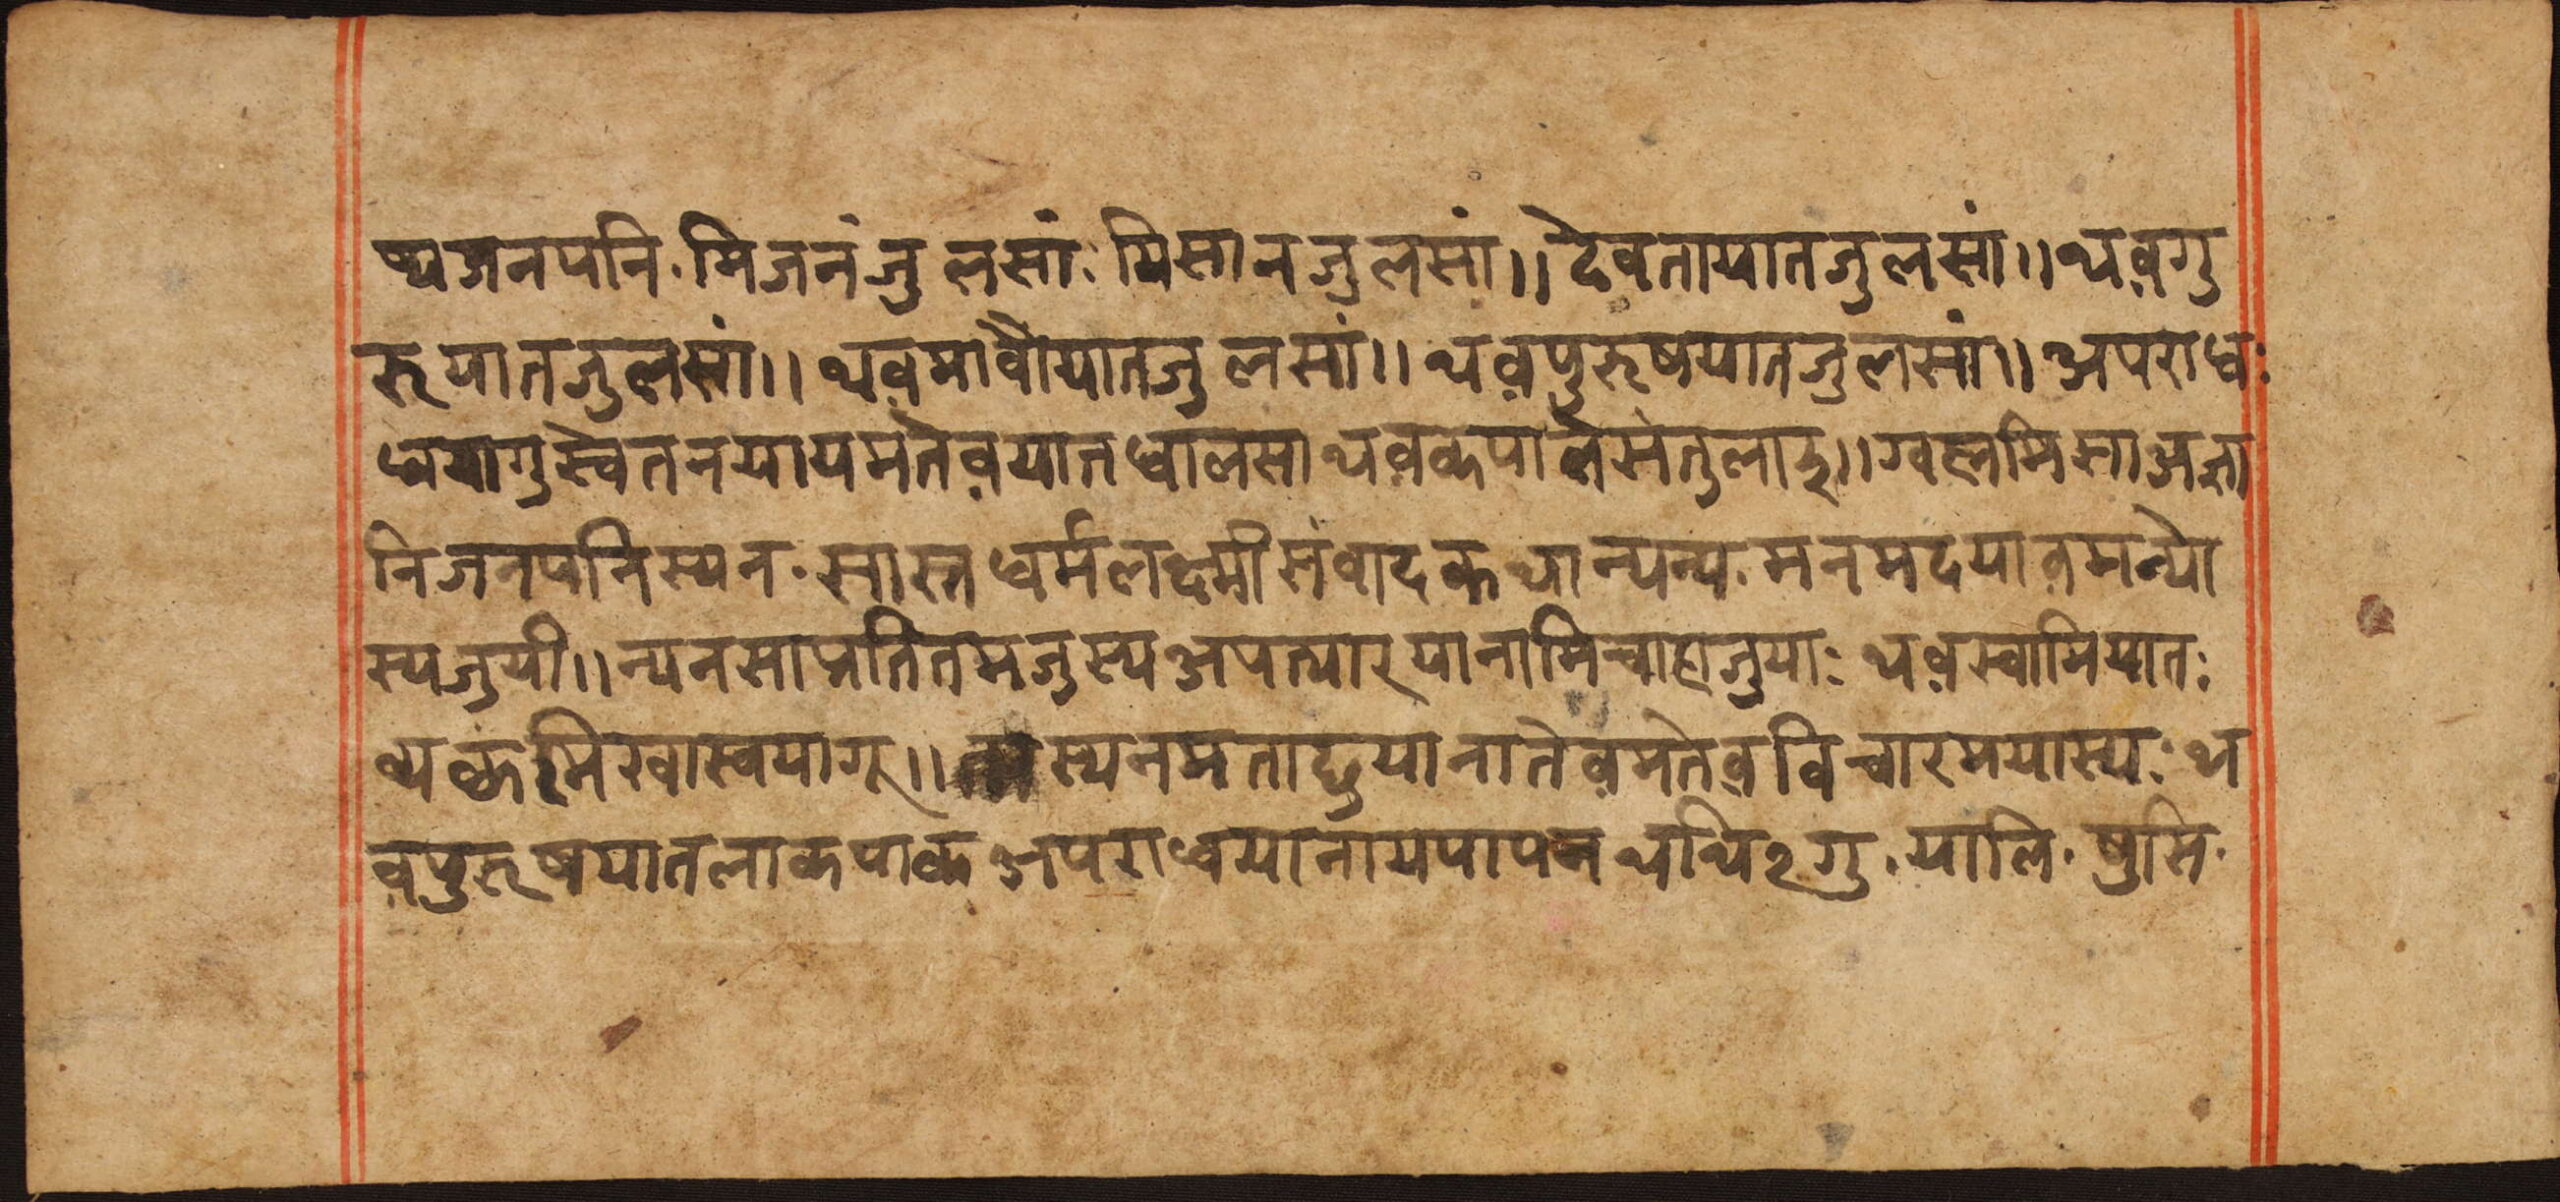 ष्यजनपनि॰मिजनंजुलसां॰मिसानजुलसां॥देवतायातजुलसां॥थव़गु
रूयातजुलसां॥थव़मावौयातजुलसां॥थव़पुरूषयातजुलसां॥अपराध॰
धयागुस्वेतनयायमतेव़यातधालसाथव़कपालेसंतुलाइ॥ग्वह्ममिसाअज्ञा
निजनपनिस्यन॰सास्त्रधर्मलक्ष्मीसंवादकथान्यन्य॰मनमदयाव़मन्यो
स्यजुयी॥न्यनसाप्रतितमजुस्यअपत्यारयानामिचाहाजुया॰थव़स्वामियात॰
व्यकमिखास्वयागू॥ स्यनमताद्दुयानातेव़मतेव़विचारमयास्य॰थ
व़पुरूषयातलाकपाकअपराधयानायपापनथथि२गु॰यालि॰षुमि॰